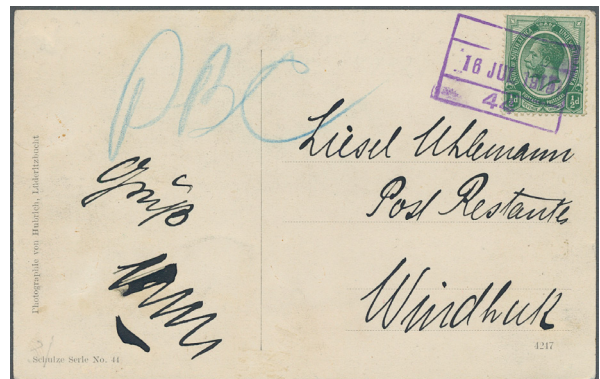 PBC
16 JU
44
½d ½d
Liesel Uhlemann
Post Restante
Windhuk
Gruß
Photographie von Hubrich, Lüderitzbucht
Schulze Serie No. 41
4247